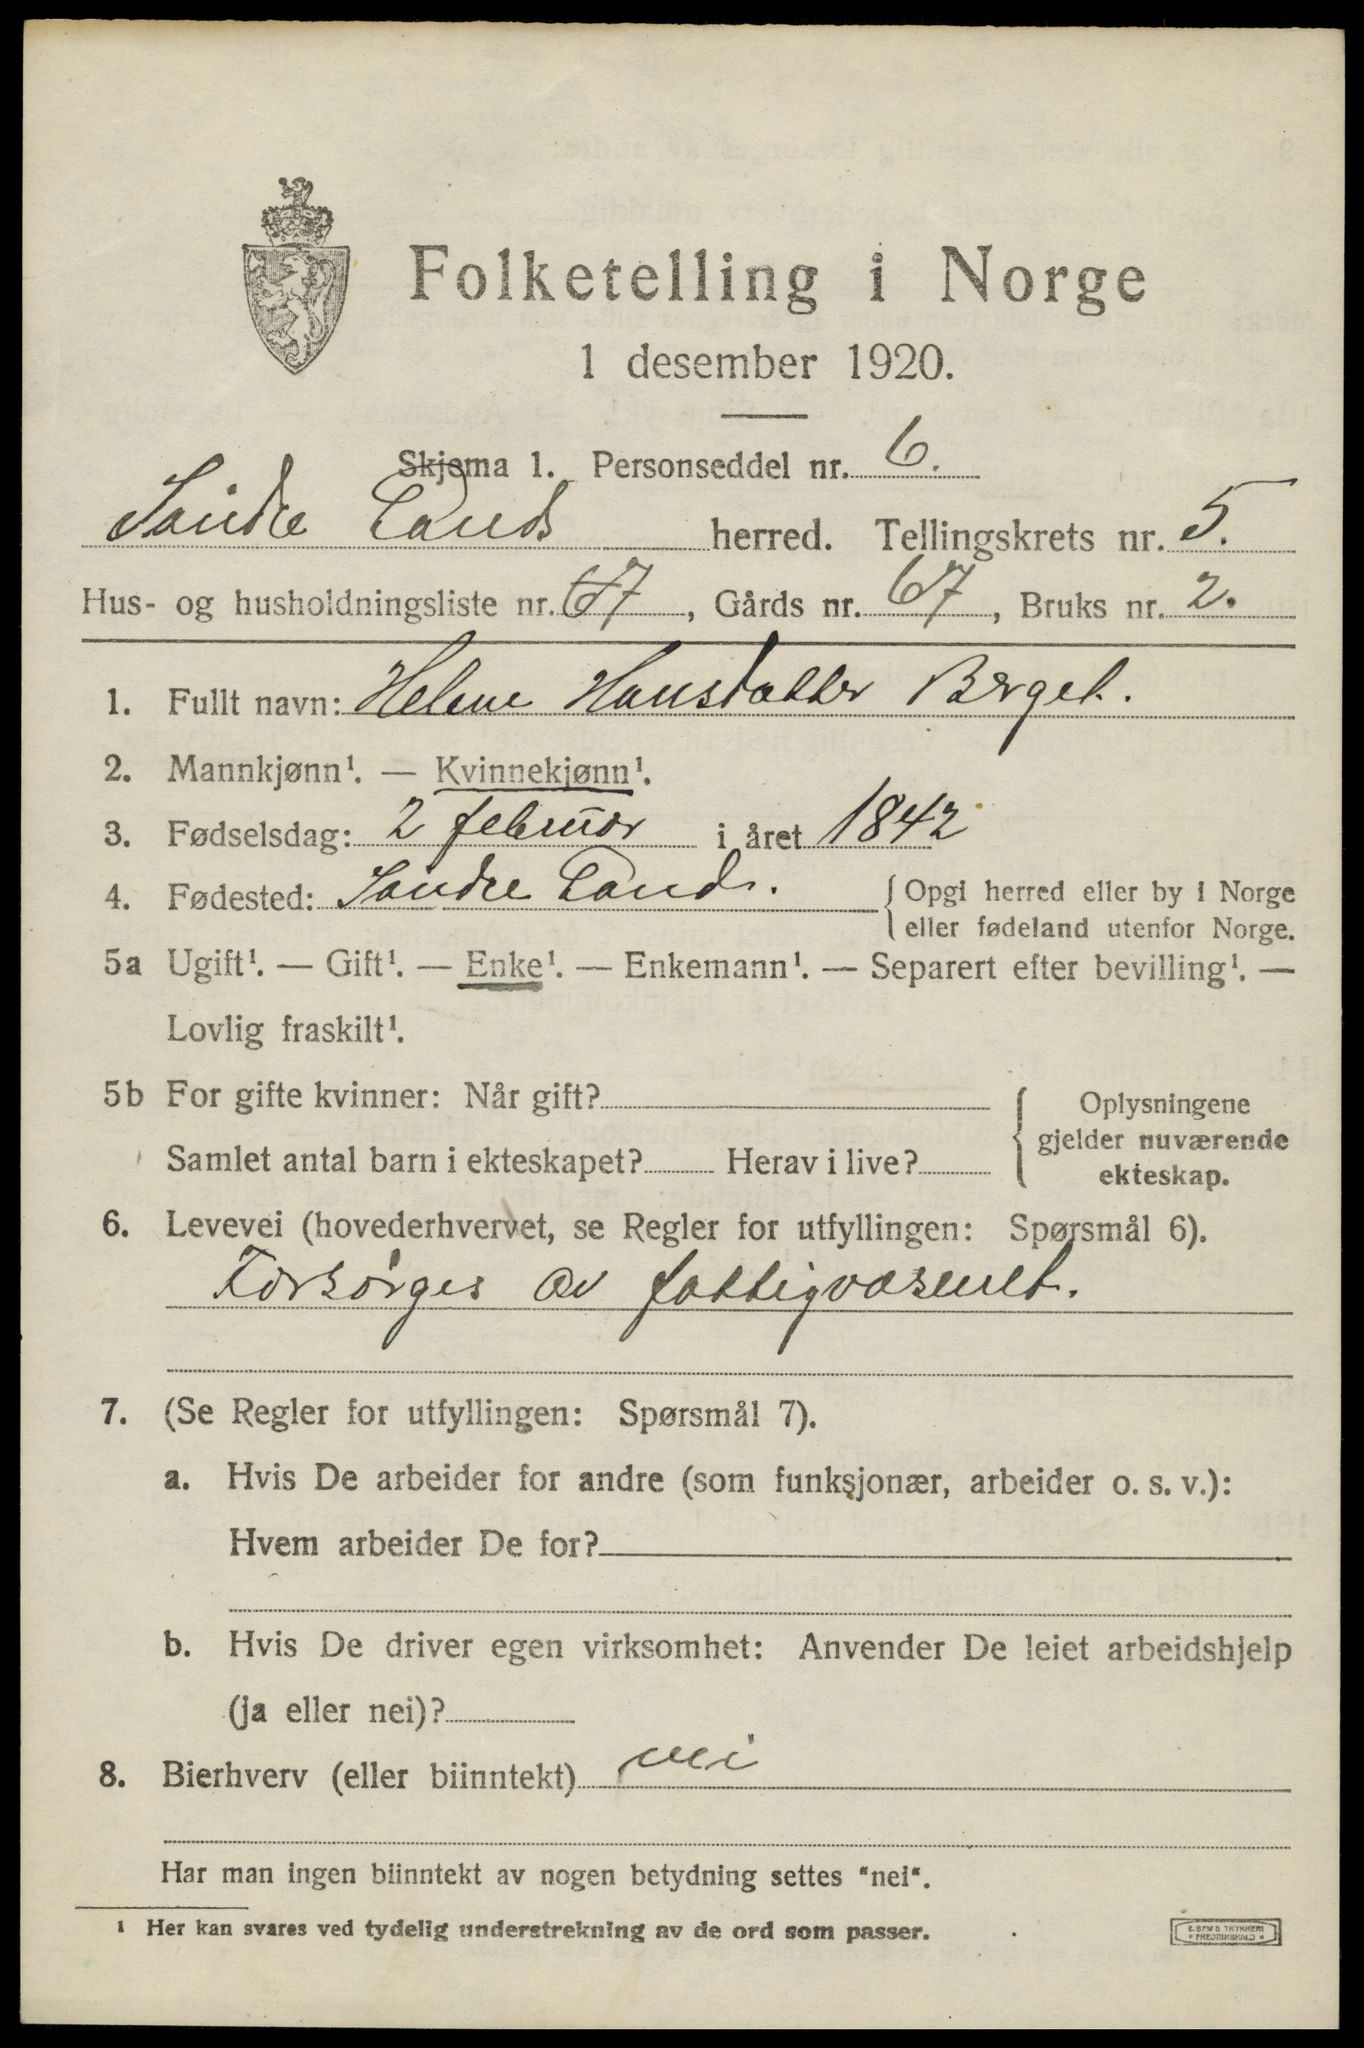 Folketelling i Norge
1 desember 1920.
Skjema 1. Personseddel nr. 6.
Søndre Lands herred. Tellingskrets nr. 5.
Hus- og husholdningsliste nr. 67, Gårds nr. 67, Bruks nr. 2.
1. Fullt navn: Helene Hansdatter Berget.
2. Mannkjønn¹. — Kvinnekjønn¹.
3. Fødselsdag: 2 februar i året 1842
4. Fødested: Søndre Land. { Opgi herred eller by i Norge
eller fødeland utenfor Norge.
5a Ugift¹. — Gift¹. — Enke¹. — Enkemann¹. — Separert efter bevilling¹. —
Lovlig fraskilt¹.
5b For gifte kvinner: Når gift?
Samlet antal barn i ekteskapet? Herav i live?
{ Oplysningene
gjelder nuværende
ekteskap.
6. Levevei (hovederhvervet, se Regler for utfyllingen: Spørsmål 6).
Forsørges av fattigvæsenet.
7. (Se Regler for utfyllingen: Spørsmål 7).
a. Hvis De arbeider for andre (som funksjonær, arbeider o. s. v.):
Hvem arbeider De for?
b. Hvis De driver egen virksomhet: Anvender De leiet arbeidshjelp
(ja eller nei)?
8. Bierhverv (eller biinntekt) nei
Har man ingen biinntekt av nogen betydning settes "nei".
¹ Her kan svares ved tydelig understrekning av de ord som passer.
E. SEM'S TRYKKERI
* FREDRIKSHALD *